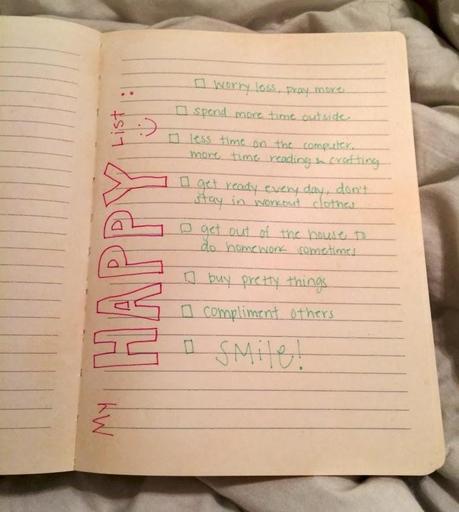 My HAPPY List:
worry less, pray more
spend more time outside
less time on the computer,
more time reading & crafting
get ready every day, don't
stay in workout clothes
get out of the house to
do homework sometimes
buy pretty things
compliment others
SMile!